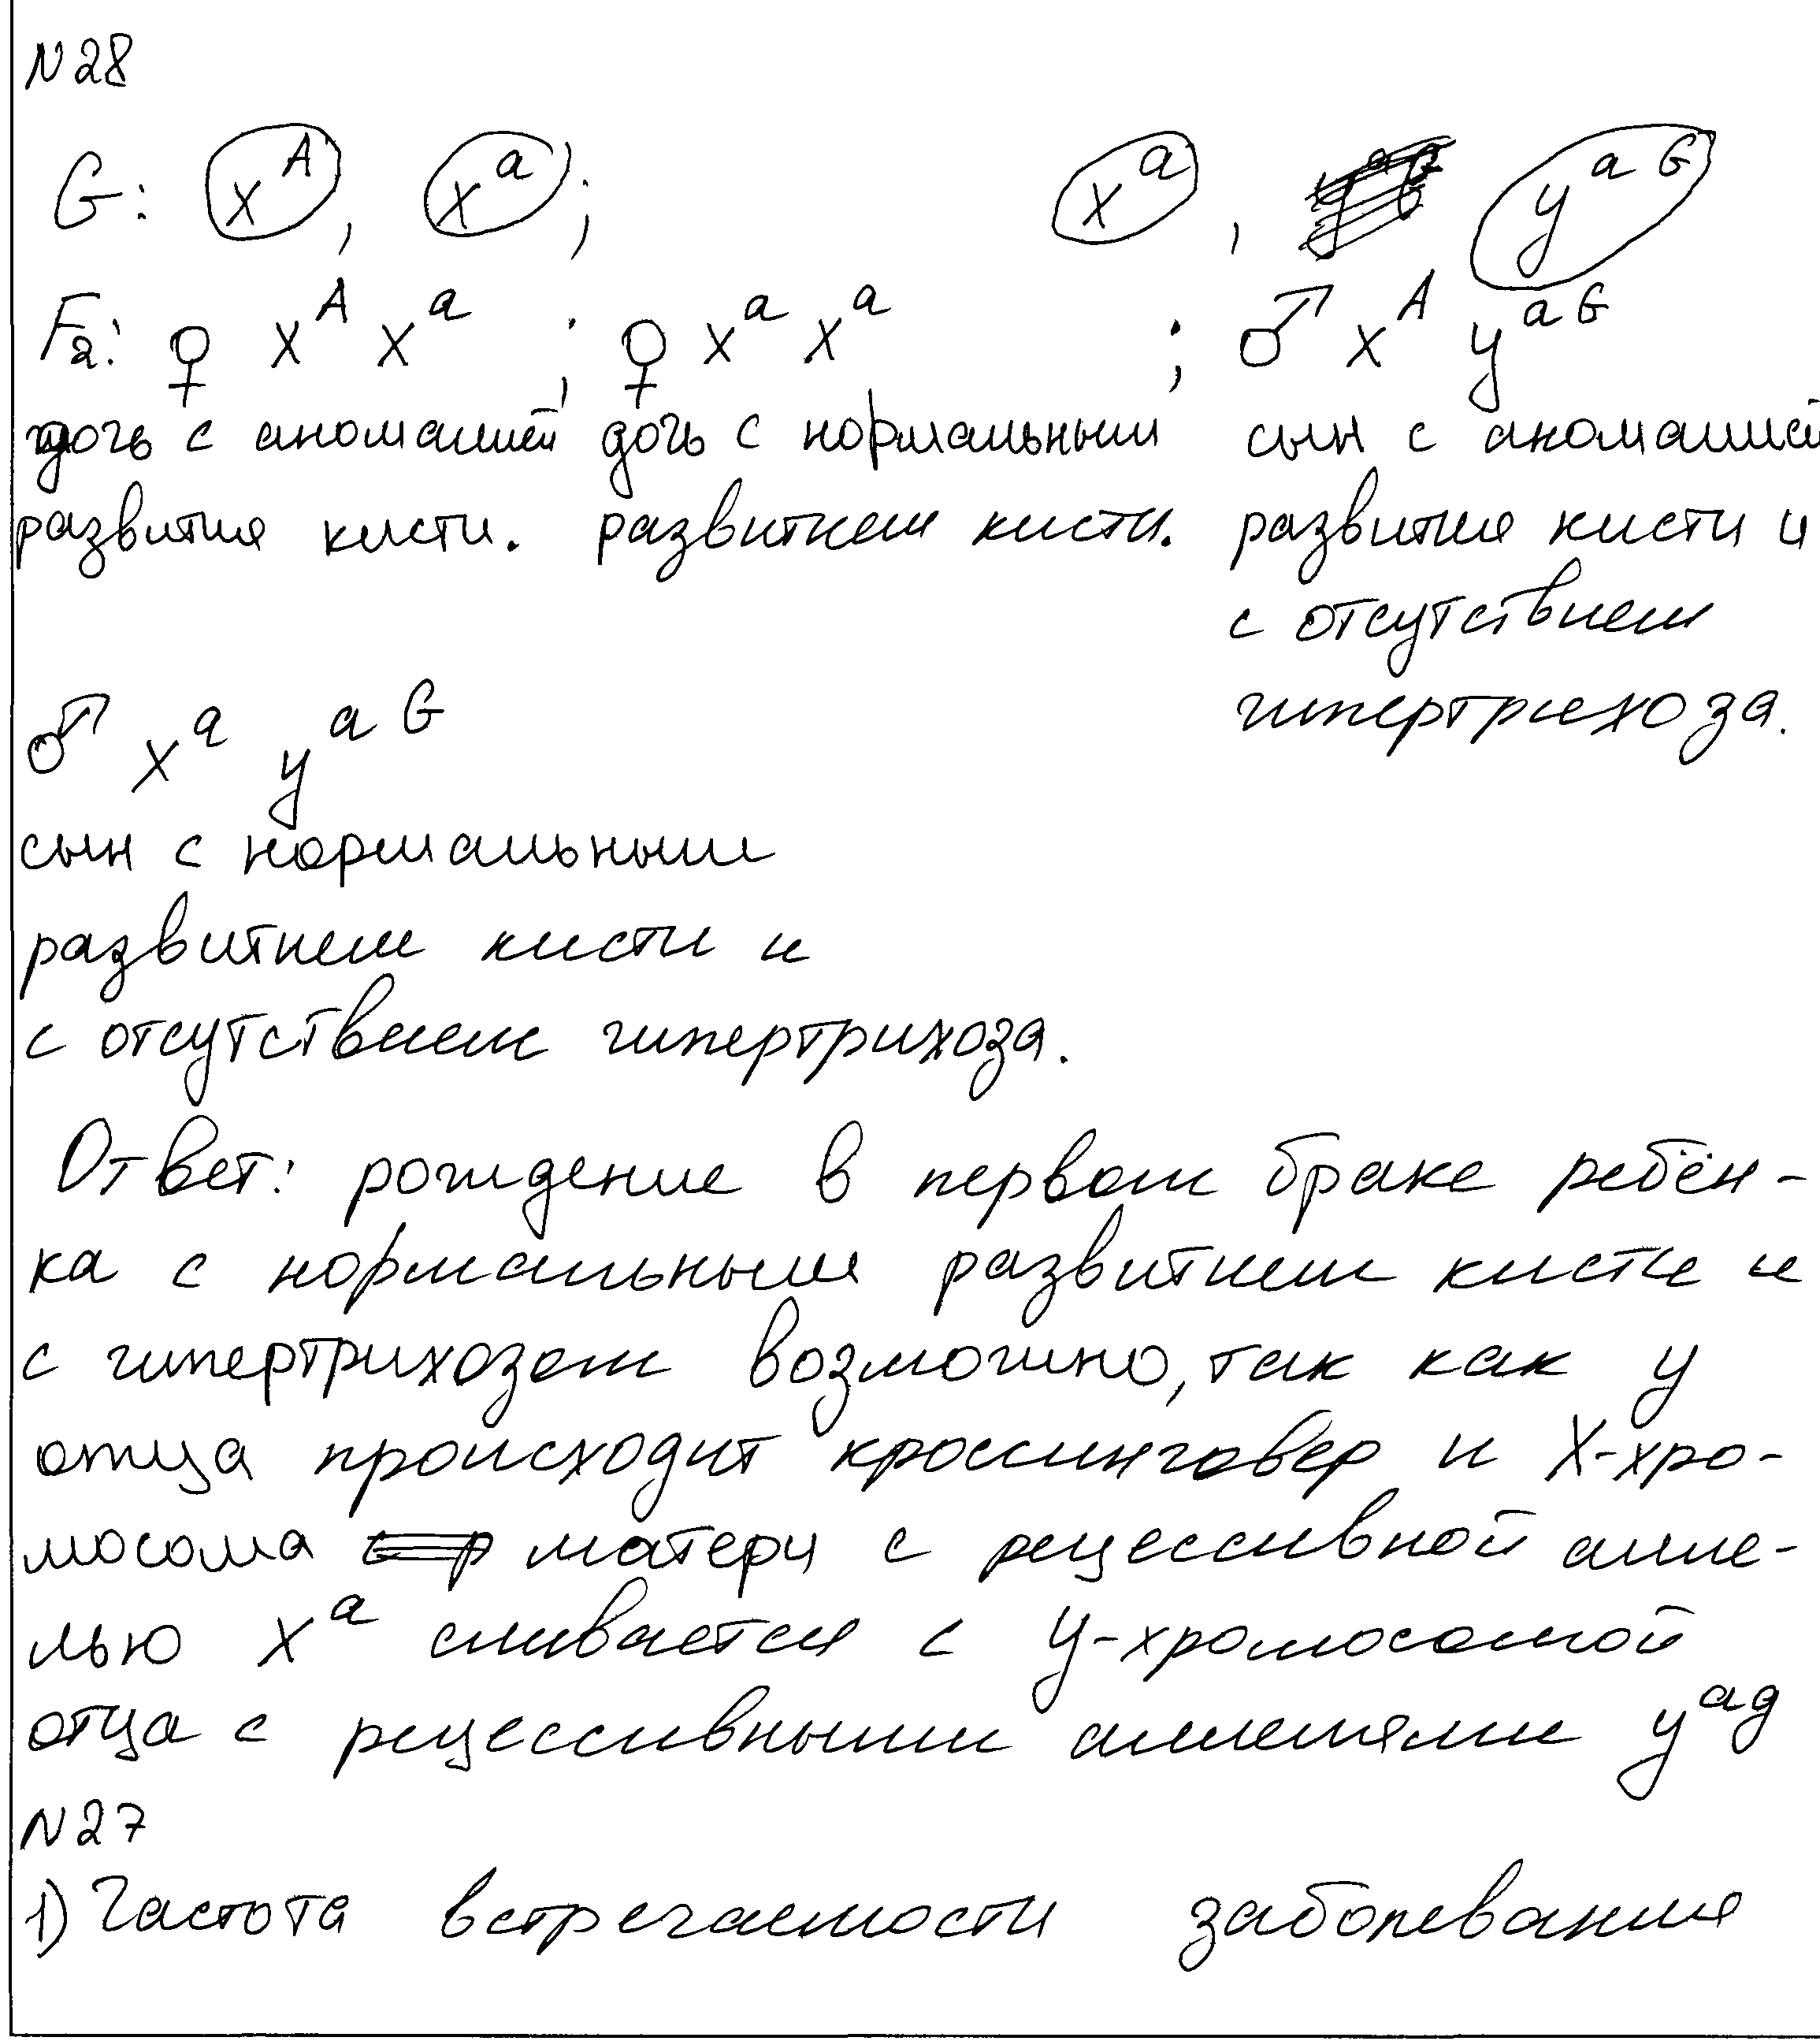 N28
G: X^A, X^a; X^a, y^aG
F2: ♀ X^A X^a ; ♀ X^a X^a ; ♂ X^A y^aG
дочь с аномалией дочь с нормальным сын с аномалией
развития кисти. развитием кисти. развития кисти и
с отсутствием
гипертрихоза.
♂ X^a y^aG
сын с нормальным
развитием кисти и
с отсутствием гипертрихоза.
Ответ: рождение в первом браке ребён-
ка с нормальным развитием кисти и
с гипертрихозом возможно, так как у
отца происходит кроссинговер и X-хро-
мосома матери с рецессивной алле-
лью X^a сливается с y-хромосомой
отца с рецессивными аллелями y^ag
N27
1) Частота встречаемости заболевания